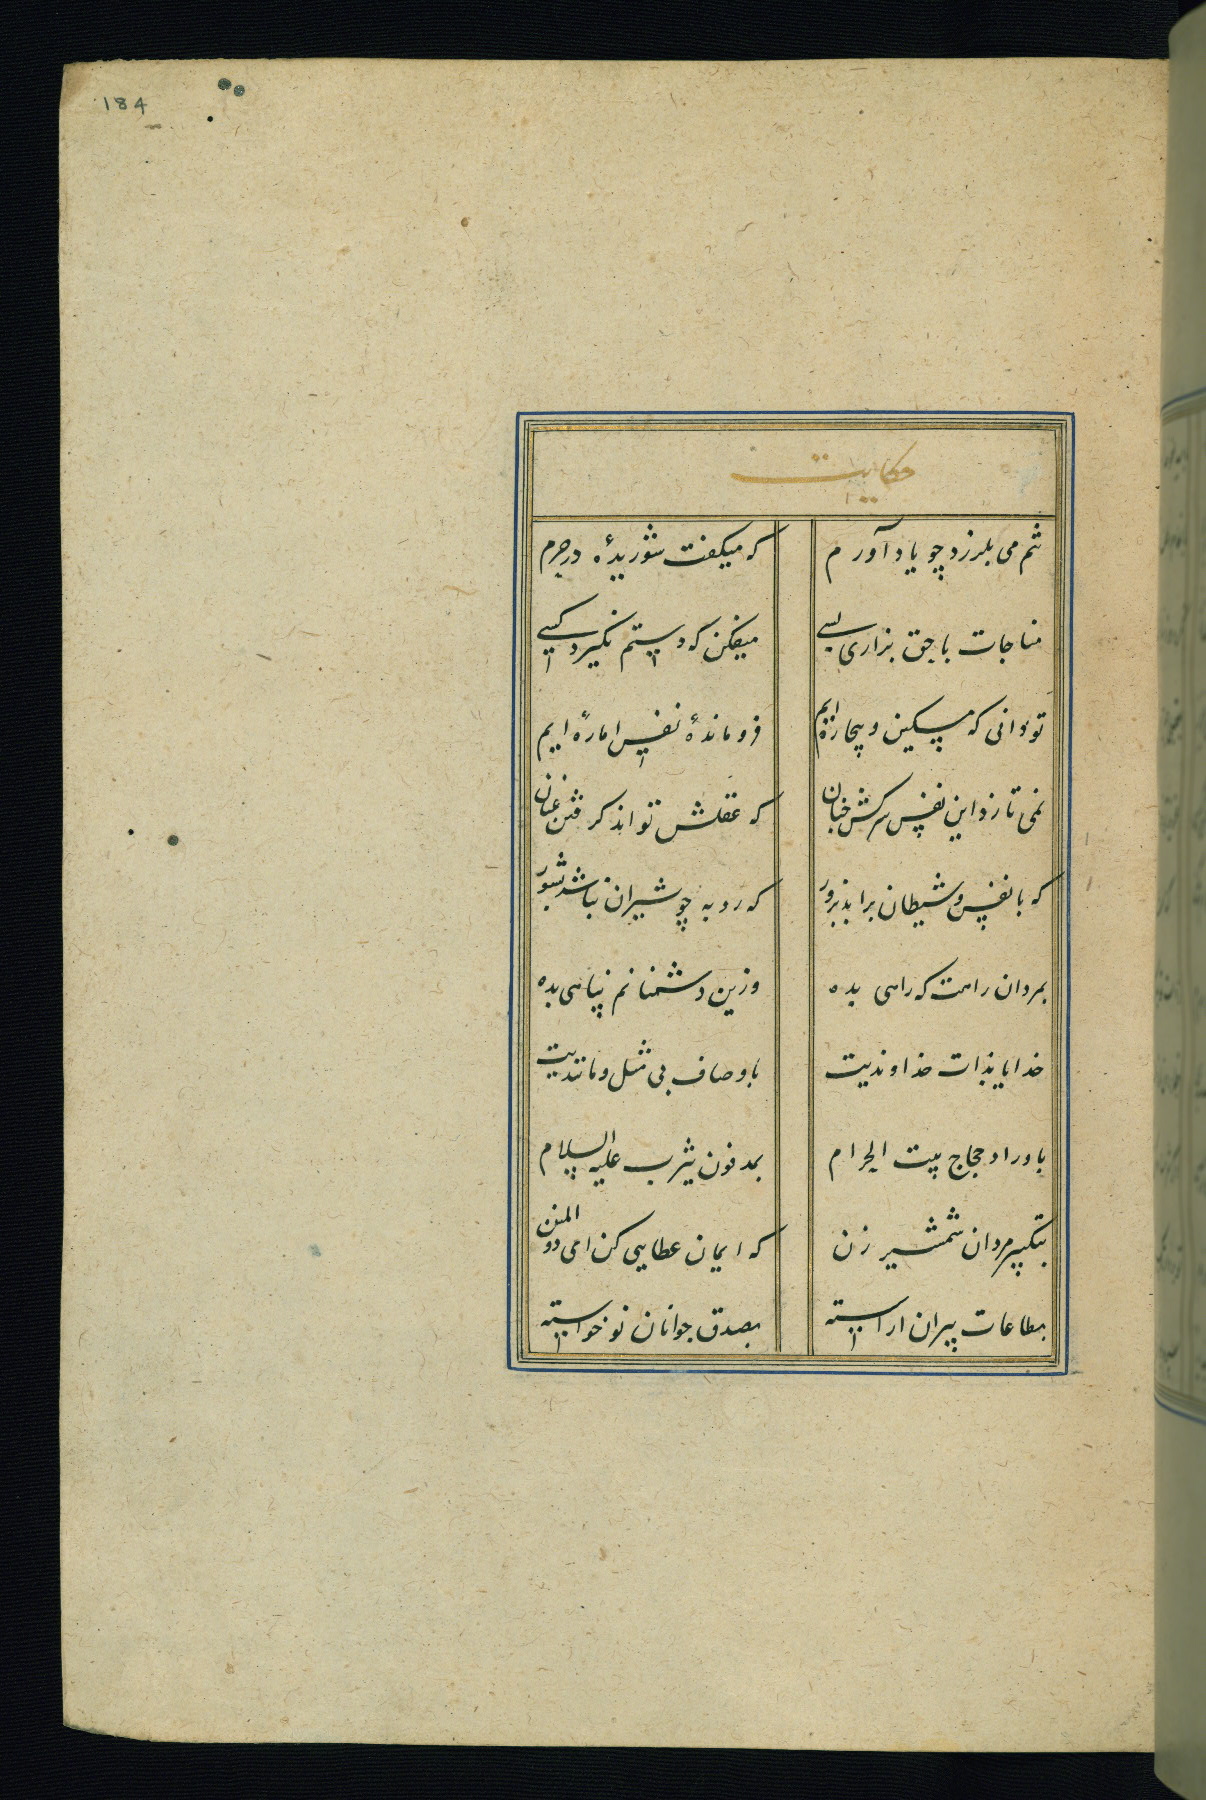 184
حکایت
تنم می بلرزد چو یاد آورم که میگفت شوریدهٔ در حرم
مناجات با حق بزاری بسی میفکن که دستم نگیرد کسی
تو دانی که مسکین و بیچاره ایم فروماندهٔ نفس امارهٔ ایم
نمی تازد این نفس سرکش چنان که عقلش تواند گرفتن عنان
که با نفس و شیطان براید بزور که روبه چو شیران نباشد
بمردان راهت که راهی بده وزین دشمنانم پناهی بده
خدایا بذات خداوندیت باوصاف بی مثل و مانندیت
باوراد حجاج بیت الحرام بمدفون یثرب علیه السلام
بتکبیر مردان شمشیر زن که ایمان عطایی کن امی ذو المنن
بطاعات پیران اراسته بصدق جوانان نوخواسته